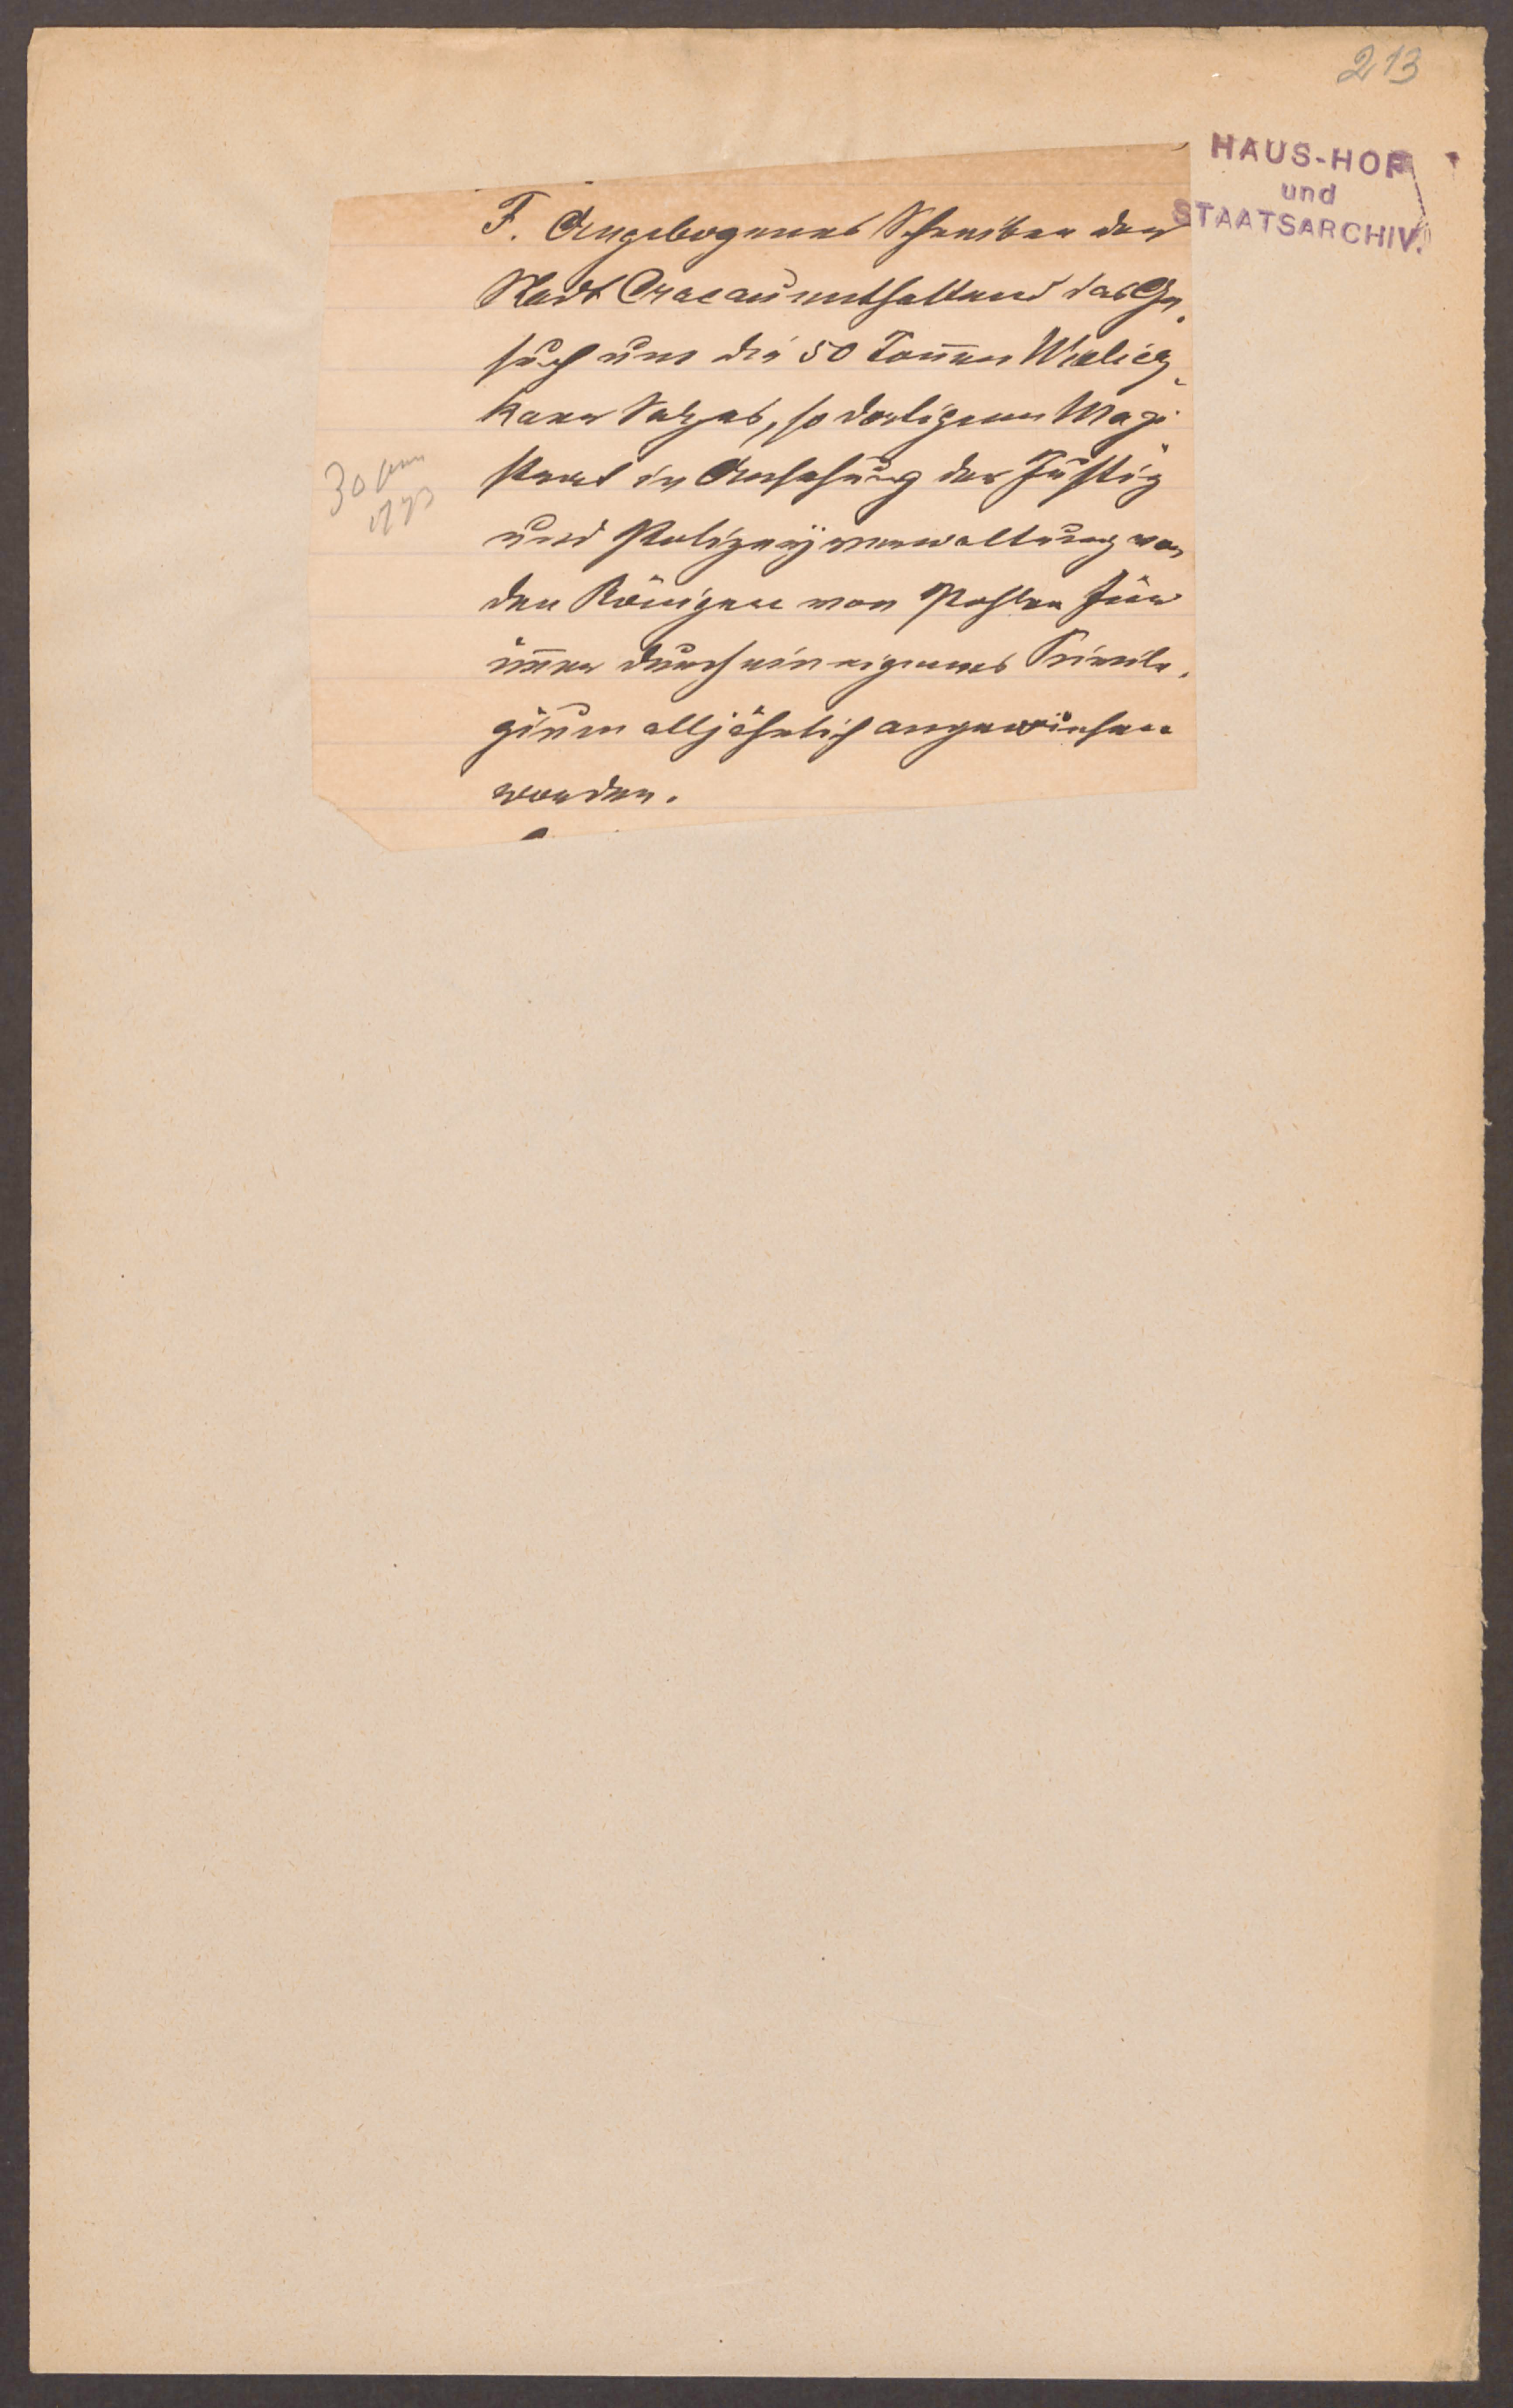 213
HAUS-HOF
und
STAATSARCHIV.
F. Angebogenes Schreiben der
Stadt Cracau enthaltend das Ge-
such um die 50 Tonnen Wielicz-
kaer Salzes, so dortigem Magi-
strat in Ansehung der Justiz
und Polizeÿverwaltung von
den Königen von Pohlen für
immer durch ein eigenes Privile-
gium alljährlich angewiesen
worden.
30